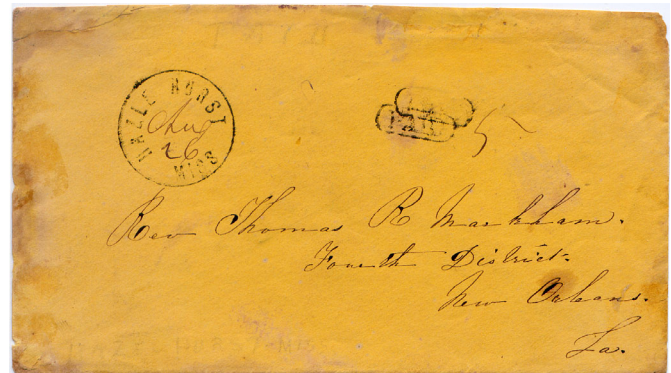 HAZLE HURST
Aug
26
MISS
PAID
5
Rev Thomas R Markham.
Fourth District.
New Orleans.
La.